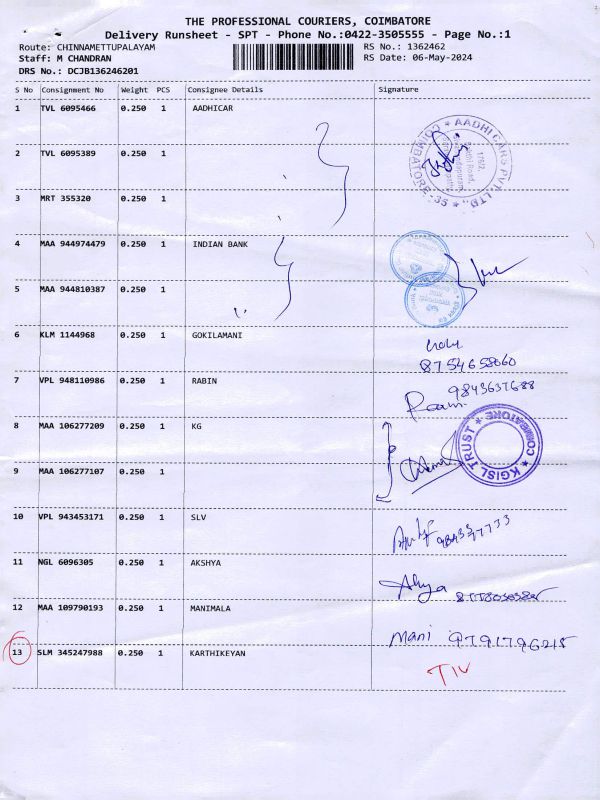 THE PROFESSIONAL COURIERS, COIMBATORE
Delivery Runsheet - SPT - Phone No.:0422-3505555 - Page No.:1
Route: CHINNAMETTUPALAYAM RS No.: 1362462
Staff: M CHANDRAN RS Date: 06-May-2024
DRS No.: DCJB136246201
S No Consignment No Weight PCS Consignee Details Signature
1 TVL 6095466 0.250 1 AADHICAR
COIMBATORE-35 * AADHI CARS PVT. LTD.,
176/2,
Road,
2 TVL 6095389 0.250 1
3 MRT 355320 0.250 1
4 MAA 944974479 0.250 1 INDIAN BANK
5 MAA 944810387 0.250 1
6 KLM 1144968 0.250 1 GOKILAMANI
8754658060
7 VPL 948110986 0.250 1 RABIN
9843637688
8 MAA 106277209 0.250 1 KG
KGISL TRUST * COIMBATORE *
9 MAA 106277107 0.250 1
10 VPL 943453171 0.250 1 SLV
11 NGL 6096305 0.250 1 AKSHYA
12 MAA 109790193 0.250 1 MANIMALA
Mani 9791796215
13 SLM 345247988 0.250 1 KARTHIKEYAN